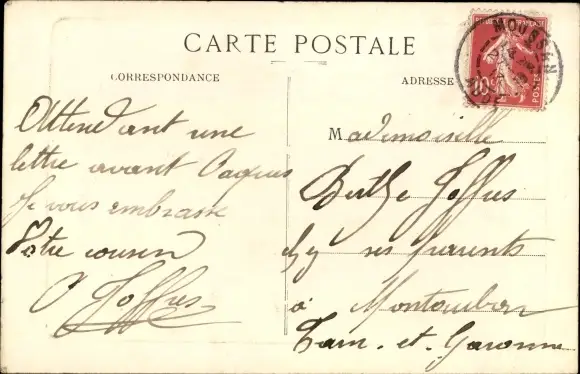 CARTE POSTALE
CORRESPONDANCE
ADRESSE
MOUSSAN
AUDE
RÉPUBLIQUE FRANÇAISE
10c
POSTES
Attendant une
lettre avant Paques
Je vous embrasse
Votre cousin
Joffres
Mademoiselle
Berthe Joffres
chez ses parents
à Montauban
Tarn-et-Garonne